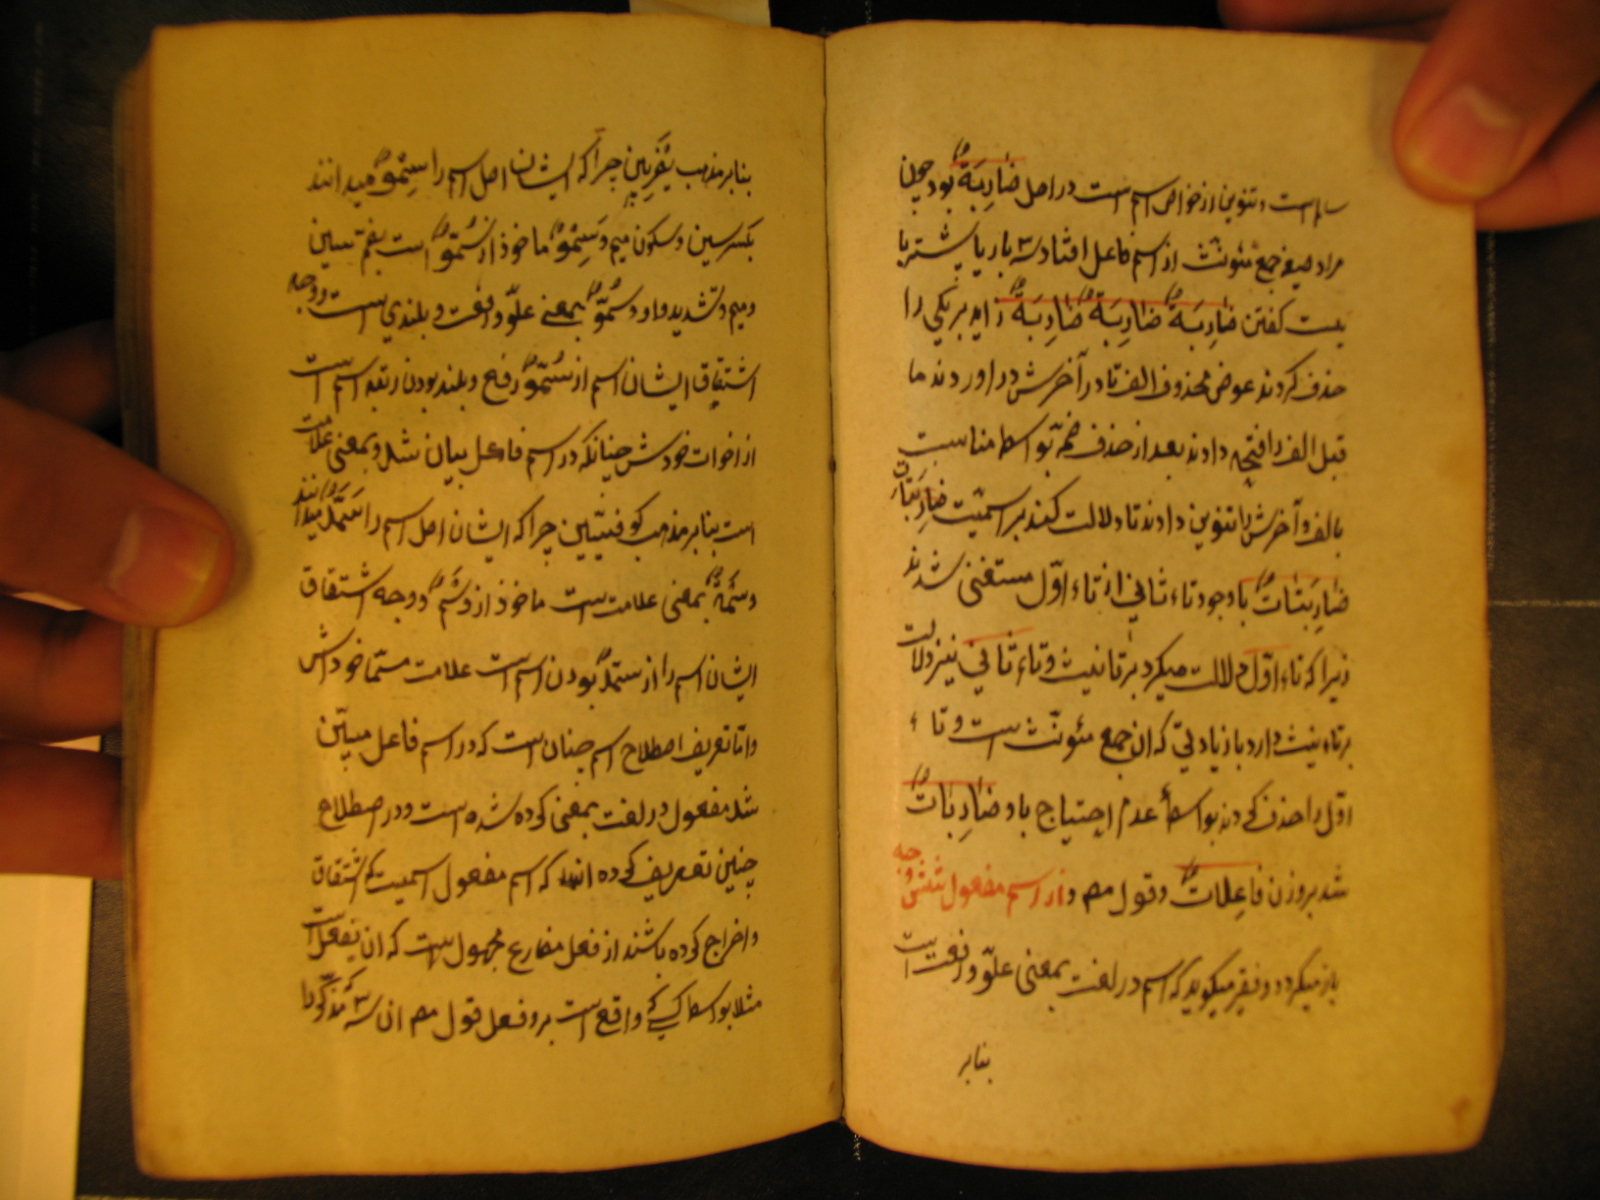 سالم است و تنوین از خواص اسم است در اصل ضَارِبَةٌ بود چون
مراد صیغه جمع مئونث از اسم فاعل افتاد سه بار یا بیشتر با
یست گفتن ضَارِبَةٌ ضَارِبَةٌ ضَارِبَةٌ زاید بر یکی را
حذف کردند عوض محذوف الف تا در آخرش در اوردند ما
قبل الف را فتحه دادند بعد از حذف ضمه بواسطه مناسبت
با الف و آخرش را تنوین دادند تا دلالت کند بر اسمیت ضَارِبَتَات
ضَارِبَتَاتٌ با وجود تاء ثانی از تاء اوّل مستغنی شدند
زیرا که تاء اوّل دلالت میکرد بر تانیث و تاء ثانی نیز دلالت
بر تانیث دارد با زیادتی که ان جمع مئونث است و تاء
اوّل را حذف کردند بواسطه عدم احتیاج باو ضَارِبَاتٌ
شد بر وزن فَاعِلَاتٌ و قول مص و از اسم مفعول شش وجه
باز میگردد و فقیر میگوید که اسم در لغت بمعنی علوّ و رفعت است
بنابر
بنابر مذهب بَصْرِیّین چرا که ایشان اصل اسم را سِمْوٌ میدانند
بکسر سین و سکون میم و سِمْوٌ ماخوذ از سُمُوٌّ است بضم سین
و میم و تشدید واو و سُمُوٌّ بمعنی علوّ و رفعت و بلندی است و وجه
اشتقاق ایشان اسم از سُمُوٌّ رفع و بلند بودن رتبه اسم است
از اخوات خودش چنانکه در اسم فاعل بیان شد و بمعنی علامت
است بنابر مذهب کوفییّین چرا که ایشان اصل اسم را میدانند
و بمعنی علامت است ماخوذ از وَسْمٌ و وجه اشتقاق
ایشان اسم را از بودن اسم است علامت مسمّا خودش
و امّا تعریف اصطلاح اسم چنان است که در اسم فاعل مبیّن
شد مفعول در لغت بمعنی کرده شده است و در اصطلاح
چنین تعریف کرده اند که اسم مفعول اسمیت که اشتقاق
و اخراج کرده باشند از فعل مضارع مجهول است که ان یفعل است
مثلا بواسطه کسی که واقع است بر و فعل قول مص ان سه مذکّر را